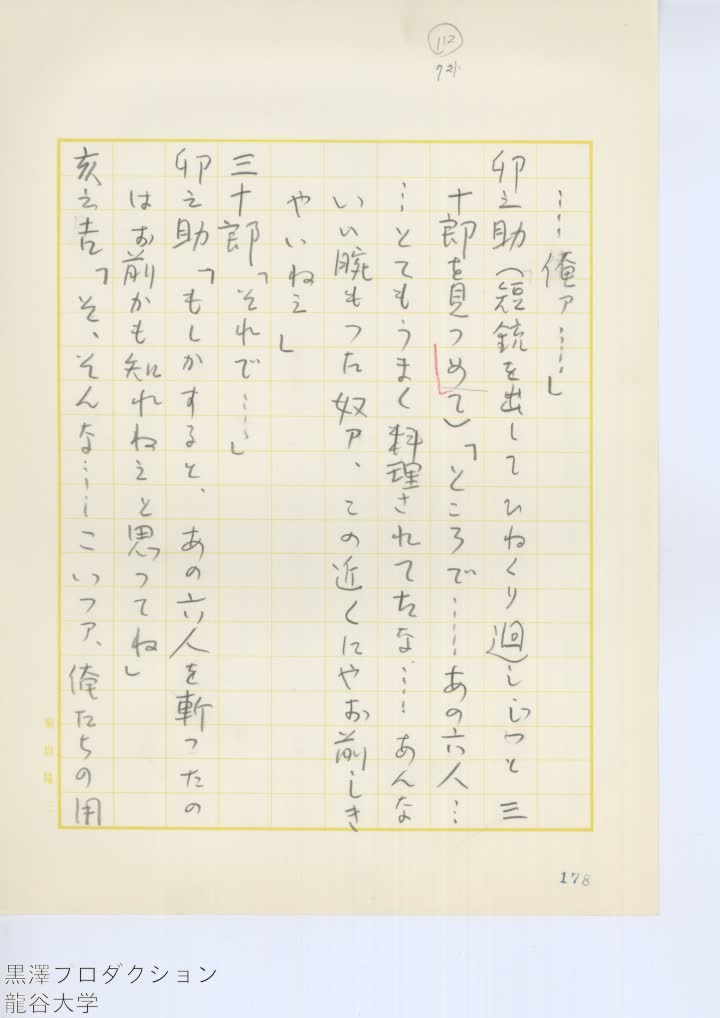 112
……俺ァ……」
卯之助(短銃を出してひねくり廻しじっと三
十郎を見つめて)「ところで……あの六人…
…とてもうまく料理されてたな……あんな
いい腕もつた奴ァ、この近くにやお前しき
やいねえ」
三十郎「それで……」
卯之助「もしかすると、あの六人を斬ったの
はお前かも知れねえと思ってね」
亥之吉「そ、そんな……こいつァ、俺たちの用
178
黒澤プロダクション
龍谷大学